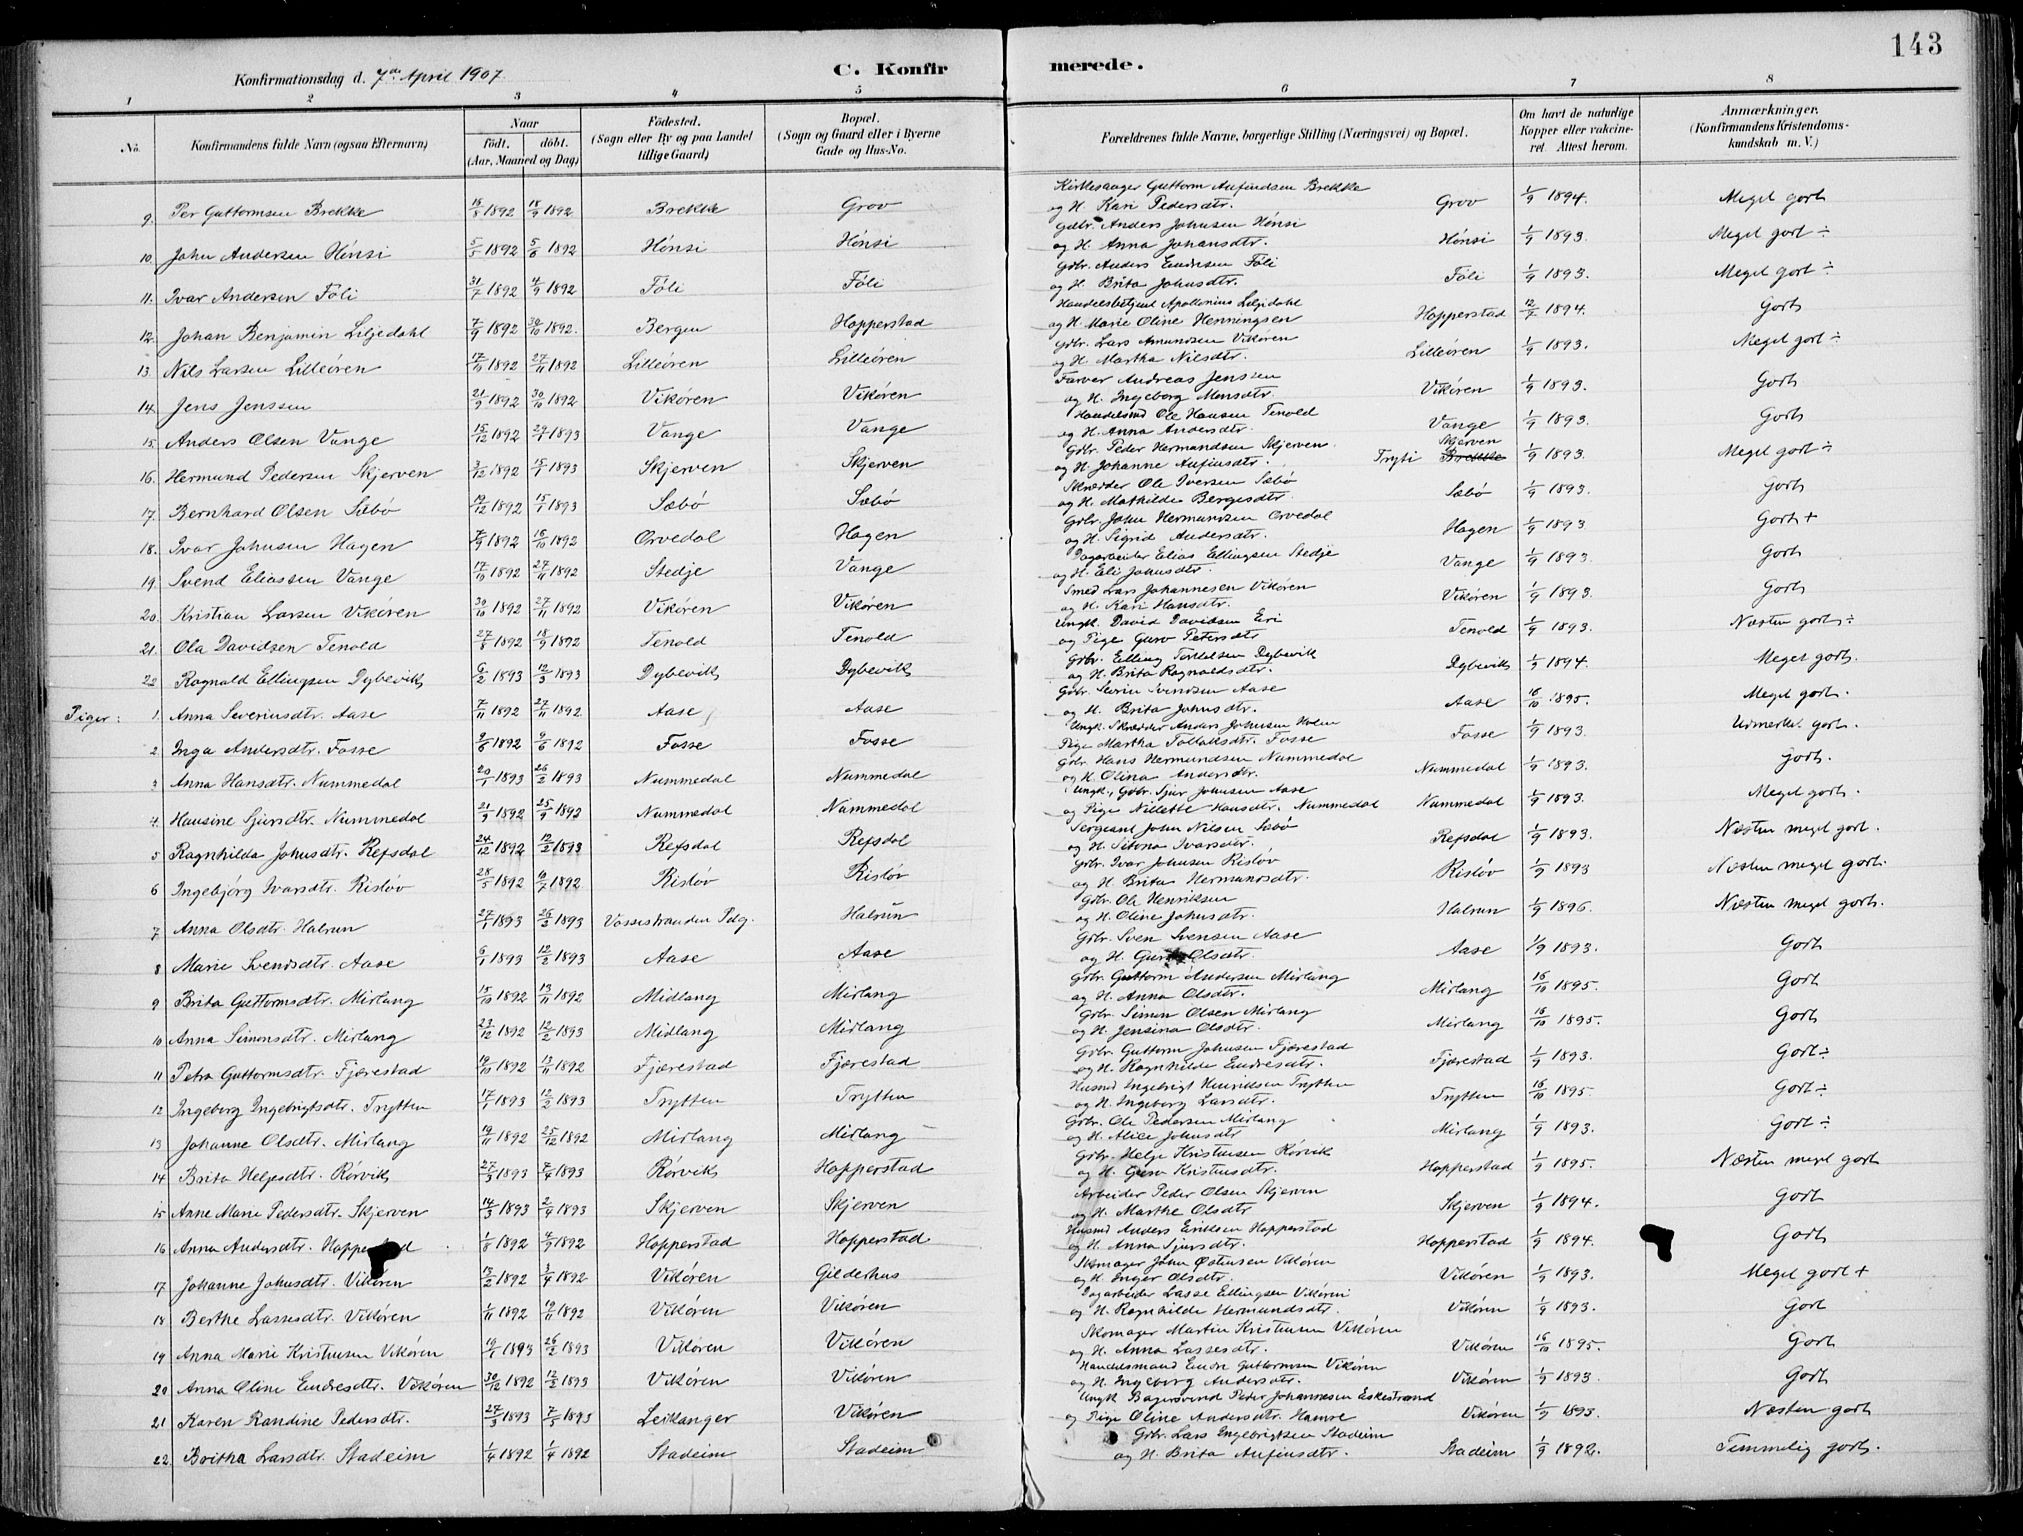 143
Konfirmationsdag d. 7de April 1907
C. Konfirmerede.
1 2 3 4 5 6 7 8
No. Konfirmandens fulde Navn (ogsaa Efternavn) Naar födt. döbt. (Aar, Maaned og Dag) Födested. (Sogn eller By og paa Landet tillige Gaard) Bopæl. (Sogn og Gaard eller i Byerne Gade og Hus-No. Forældrenes fulde Navne, borgerlige Stilling (Næringsvei) og Bopæl. Om havt de naturlige Kopper eller vakcineret. Attest herom. Anmærkninger. (Konfirmandens Kristendomskundskab m. V.)
9. Per Guttormsen Brekke 16/8 1892 18/9 1892 Brekke Grov Kirkesanger Guttorm Anfindsen Brekke og H. Kari Pedersdtr. Grov 1/9 1894. Meget godt
10. John Andersen Hönsi 5/5 1892 5/6 1892 Hönsi Hönsi Gdbr. Anders Johnsen Hönsi og H. Anna Johansdtr. Hönsi 1/9 1893. Meget godt ÷
11. Ivar Andersen Föli 31/7 1892 4/9 1892 Föli Föli Gdbr. Anders Endresen Föli og H. Brita Johnsdtr. Föli 1/9 1893. Meget godt ÷
12. Johan Benjamin Liljedahl 7/9 1892 30/10 1892. Bergen Hopperstad Handelsbetjent Apollonius Liljedahl og H. Marie Oline Henningsen Hopperstad 12/7 1894. Godt
13. Nils Larsen Lilleören 17/10 1892 27/11 1892 Lilleören Lilleören Gdbr. Lars Amundsen Vikören og H. Martha Nilsdtr. Lilleören 1/9 1893. Meget godt ÷
14. Jens Jenssen 21/9 1892 30/10 1892 Vikören Vikören Farver Andreas Jenssen og H. Ingeborg Monsdtr. Vikören 1/9 1893. Godt
15. Anders Olsen Vange 15/12 1892 29/1 1893 Vange Vange Handelsmd Ole Hansen Tenold og H. Anna Andersdtr. Vange 1/9 1893. Godt
16. Hermund Pedersen Skjerven 3/12 1892 15/1 1893 Skjerven Skjerven Gdbr. Peder Hermandsen Skjerven. og H. Johanne Anfinsdtr. Tryti Brekke Skjerven 1/9 1893. Meget godt ÷
17. Bernhard Olsen Sæbö 19/12 1892 15/1 1893 Sæbö Sæbö Skrædder Ole Iversen Sæbö og H. Mathilde Bergesdtr. Sæbö 1/9 1893. Godt
18. Ivar Johnsen Hagen 7/9 1892 16/10 1892 Orvedal Hagen Gdbr. John Hermundsen Orvedal og H. Sigrid Andersdtr. Hagen 1/9 1893 Godt +
19. Svend Eliassen Vange 17/10 1892 27/11 1892 Stedje Vange Dagarbeider Elias Ellingsen Stedje og H. Eli Johnsdtr. Vange 1/9 1893. Godt
20. Kristian Larsen Vikören 30/10 1892 27/11 1892 Vikören Vikören Smed Lars Johannesen Vikören og H. Kari Hansdtr. Vikören 1/9 1893. Godt
21. Ola Davidsen Tenold 27/8 1892 18/9 1892 Tenold Tenold Ungk. David Davidsen Eri og Pige Guro Petersdtr Tenold 1/9 1893. Næsten godt ÷
22 Ragnald Ellingsen Dybevik 6/2 1893 12/3 1893 Dybevik Dybevik Gdbr. Elling Torkelsen Dybevik og H. Brita Ragnaldsdtr. Dybevik 1/9 1894. Meget godt.
Piger: 1. Anna Severinsdtr. Aase 7/11 1892 27/11 1892 Aase Aase Gdbr. Severin Svendsen Aase og H. Brita Johnsdtr. Aase 16/10 1895. Meget godt.
2. Inga Andersdtr. Fosse 9/6 1892 9/6 1892 Fosse Fosse Ungk. Skrædder Anders Johnsen Holen Pige Martha Tollaksdtr. Fosse Fosse 1/9 1893. Udmerket godt.
3 Anna Hansdtr. Nummedal 20/1 1893 26/2 1893 Nummedal Nummedal Gdbr. Hans Hermundsen Nummedal og H. Olina Andersdtr. Nummedal 1/9 1893. Godt.
4. Hansine Sjursdtr. Nummedal 21/9 1892 25/9 1892 Nummedal Nummedal Ungk., Gdbr. Sjur Johnsen Aase og Pige Nillette Hansdtr. Nummedal Nummedal 1/9 1893. Meget godt.
5 Ragnhilda Johnsdtr. Refsdal 24/12 1892 12/2 1893 Refsdal Refsdal Sergeant John Nilsen Sæbö og H. Ivarsdtr. Refsdal 1/9 1893. Næsten meget godt.
6 Ingebjörg Ivarsdtr. Rislöv 28/5 1892 10/7 1892 Rislöv Rislöv Gdbr. Ivar Johnsen Rislöv og H. Brita Hermundsdtr. Rislöv 1/9 1893 Næsten meget godt.
7 Anna Olsdtr. Halrun 27/1 1893 26/2 1893 Vossestranden Pdg. Halrun Gdbr. Ole Henriksen og H. Oline Johnsdtr. Halrun 1/9 1896. Næsten meget godt.
8 Marie Svendsdtr. Aase 6/1 1893 12/2 1893 Aase Aase Gdbr. Sven Svensen Aase og H. Guro Olsdtr. Aase 1/9 1893. Godt
9 Brita Guttormsdtr. Midlang 15/10 1892 13/11 1892 Midlang Midlang Gdbr. Guttorm Andersen Midlang og H. Anna Olsdtr. Midlang 16/10 1895. Godt
10 Anna Simonsdtr. Midlang 23/12 1892 12/2 1893 Midlang Midlang Gdbr. Simon Olsen Midlang og H. Jensina Olsdtr. Midlang 16/10 1895. Godt
11 Petra Guttormsdtr. Fjærestad 19/10 1892 13/11 1892 Fjærestad Fjærestad Gdbr. Guttorm Johnsen Fjærestad og H. Ragnhilde Endresdtr. Fjærestad 1/9 1893. Godt ÷
12 Ingeborg Ingebrigtsdtr. Trytten 17/1 1893 12/2 1893 Trytten Trytten Husmd Ingebrigt Henriksen Trytten og H. Ingeborg Larsdtr. Trytten 16/10 1895. Godt ÷
13 Johanne Olsdtr. Midlang 19/11 1892 25/12 1892 Midlang Midlang Gdbr. Ole Pedersen Midlang og H. Alice Johnsdtr Midlang 1/9 1893. Godt ÷
14 Brita Helgesdtr. Rörvik 27/3 1893 7/4 1893 Rörvik Hopperstad Gdbr. Helge Kristensen Rörvik og H. Guro Kristensdtr. Hopperstad 1/9 1895. Næsten meget godt
15 Anne Marie Pedersdtr. Skjerven 14/3 1893 2/4 1893 Skjerven Skjerven Arbeider Peder Olsen Skjerven og H. Marthe Olsdtr Skjerven 1/9 1894. Godt
16 Anna Andersdtr. Hopperstad 1/8 1892 4/9 1892 Hopperstad Hopperstad Husmd Anders Eriksen Hopperstad og H. Anna Sjursdtr. Hopperstad 1/9 1894. Godt
17. Johanne Johnsdtr. Vikören 13/2 1892 3/4 1892 Vikören Gilderhus Skomager John Östensen Vikören og H. Inger Olsdtr. Vikören 1/9 1893. Meget godt +
18 Berthe Lassesdtr. Vikören 1/11 1892 19/11 1892 Vikören Vikören Dagarbeider Lasse Ellingsen Vikören og H. Ragnhilde Hermundsdtr. Vikören 1/9 1893. Godt
19 Anna Marie Kristensen Vikören 19/1 1893 26/2 1893 Vikören Vikören Skomager Martin Kristensen Vikören og H. Anna Lassesdtr. Vikören 16/10 1895. Godt
20 Anna Oline Endresdtr. Vikören 30/12 1892 12/2 1893 Vikören Vikören Handelsmand Endre Guttormsen Vikören og H. Ingeborg Andersdtr. Vikören 1/9 1893. Godt
21 Karen Randine Pedersdtr. 27/3 1893 7/5 1893 Leikanger Vikören Ungk. Bagersvend Peter Johannesen Eskestrand og Pige Oline Andersdtr. Hamre Vikören 1/9 1893. Næsten godt
22. Britha Larsdtr. Stadeim 1/4 1892 1/4 1892 Stadeim Stadeim Gdbr. Lars Engebrigtsen Stadeim og H. Brita Anfinsdtr. Stadeim 1/9 1892. Temmelig godt.